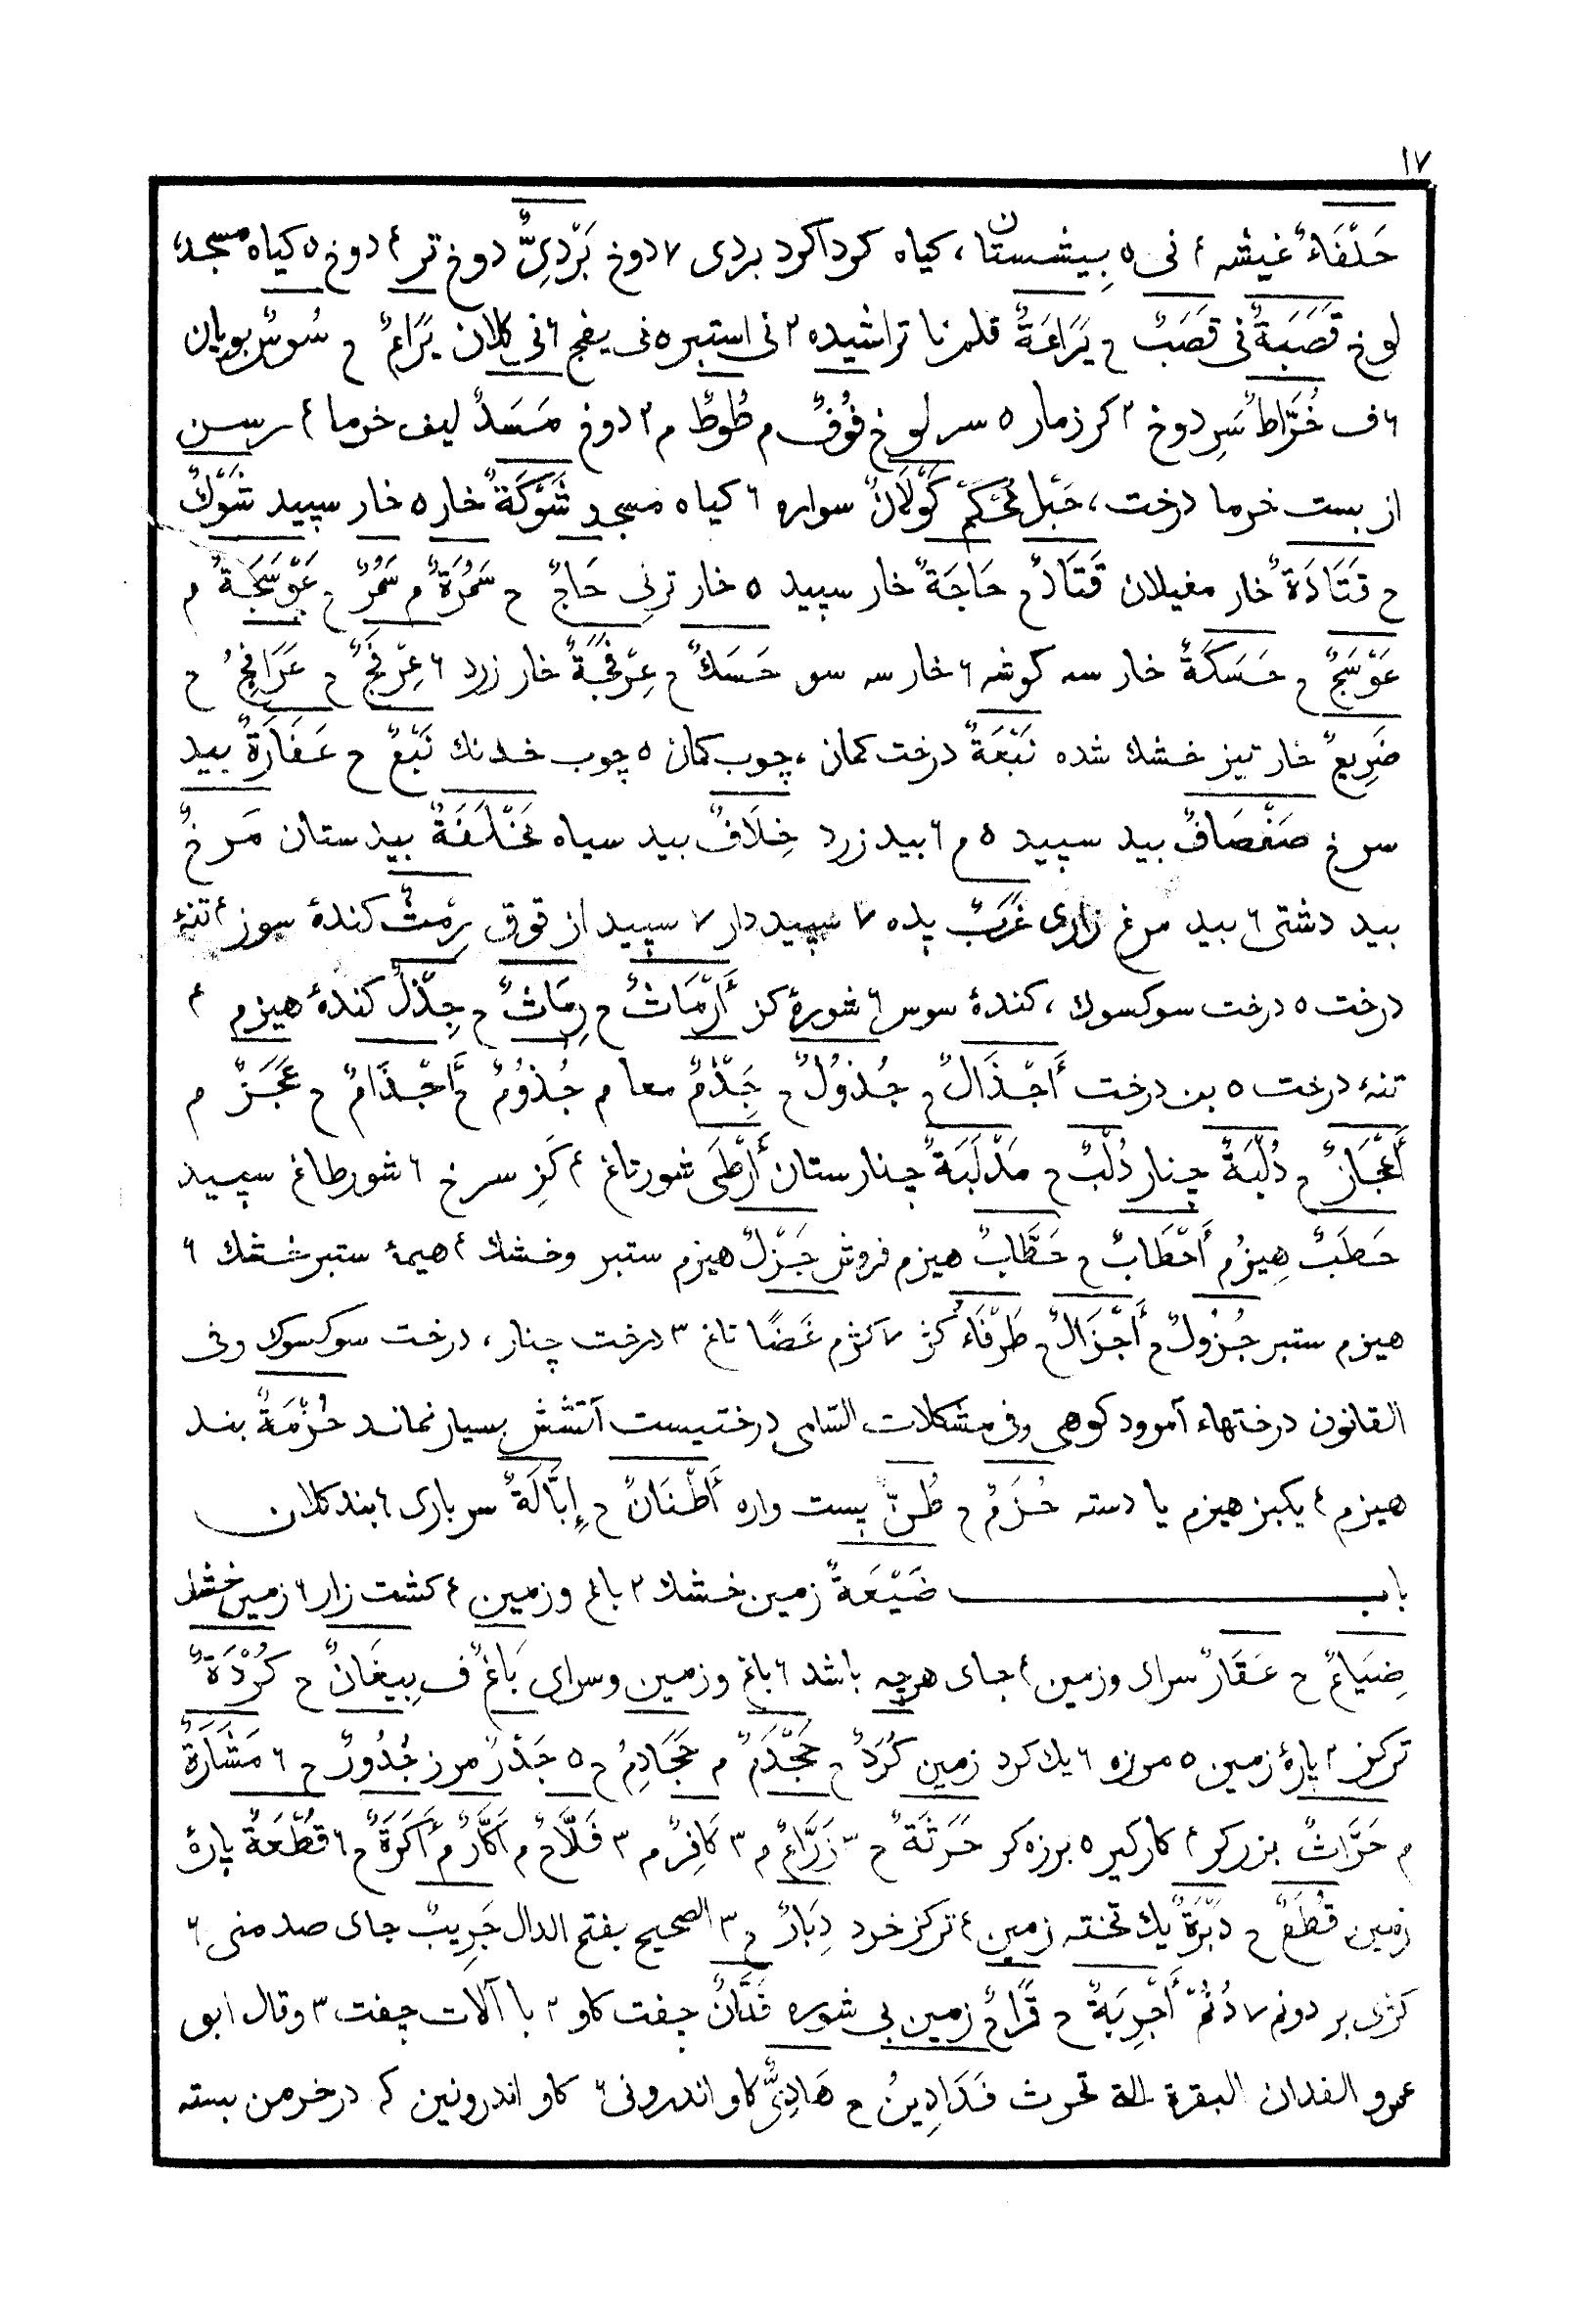 ١٧
حَلْفَاءُ غيشه ٤ نى ٥ بِيشستان ، كياه كرداكرد بردى ٧ دوخ بَرْدِىٌّ دوخ تر ٤ دوخ ٥ كياه مسجد
لوخ قَصَبَةٌ نى قَصَبٌ ح يَرَاعَةٌ قلمرنا تراشيده ٣ نى استبر ٥ نى يفج ٦ نى كلان يَرَاعٌ ح سُوسٌ بويان
٦ ف خُرَّاطٌ سَرِ دوخ ٣ كرزمار ٥ سر لوخ فُوفٌ م طُوطٌ م ٣ دوخ مَسَدٌ ليف خرما ٤ رسن
از بست خرما درخت ، حَبْل مُحْكَمٌ كَوْلَانٌ سواره ٦ كياه مسجد شَوْكَةٌ خار ٥ خار سپيد شَوْكٌ
ح قَتَادَةٌ خار مغيلان قَتَادٌ ح حَاجَةٌ خار سپيد ٥ خار ترنى حَاجٌ ح سَمُرَةٌ م سَمُرٌ ح عَوْسَجَةٌ م
عَوْسَجٌ ح حَسَكَةٌ خار سه كوشه ٦ خار سه سو حَسَكٌ ح عِرْفَجَةٌ خار زرد ٦ عِرْفَجٌ ح عَرَافِجُ ح
ضَرِيعٌ خار تيز خشك شده نَبْعَةٌ درخت كمان ، چوب كمان ٥ چوب خدنك نَبْعٌ ح عَفَارَةٌ بيد
سرخ صَفْصَافٌ بيد سپيد ٥ م ٦ بيد زرد خِلَافٌ بيد سياه مَخْلَفَةٌ بيدستان مَرخٌ
بيد دشتى ٦ بيد مرغ زارى غَرَبٌ پده ٧ سپيددار ٧ سپيد از قوق رِمْثٌ كندۀ سوز ٤ تنۀ
درخت ٥ درخت سوكسوك ، كندۀ سوس ٦ شورۀ كز أَرْمَاثٌ ح رِمَاثٌ ح جِذْلٌ كندۀ هيزم ٤
تنۀ درخت ٥ بن درخت أَجْذَالٌ ح جُذُولٌ ح جِذْمٌ معا م جُذُومٌ ح أَجْذَامٌ ح عَجَزٌ م
أَعْجَازٌ ح دُلْبَةٌ چنار دُلْبٌ ح مَدْلَبَةٌ چنارستان أَرْطَى شورتاغ ٤ كَزِ سرخ ٦ شورطاغ سپيد
حَطَبٌ هِيزُم أَحْطَابٌ ح حَطَّابٌ هيزم فروش جَزْلٌ هيزم ستبر وخشك ٤ هيمۀ ستبر خشك ٦
هيزم ستبر جُزُولٌ ح أَجْزَالٌ ح طَرْفَاءُ كز ٧ كژم غَضًا تاغ ٣ درخت چنار ، درخت سوكسوك وفى
القانون درختهاء آمرود كوهى وفى مشكلات السّامى درختيست آتشش بسيار نماند حُزْمَةٌ بند
هيزم ٤ يكبز هيزم يا دسته حُزَمٌ ح طُنٌّ پست واره أَطْنَانٌ ح إِبَّالَةٌ سربارى ٤ بند كلان
باب ضَيْعَةٌ زمين خشك ٣ باغ وزمين ٤ كشت زار ٦ زمين خشك
ضِيَاعٌ ح عَقَارٌ سراى وزمين ٤ جاى هرچه باشد ٦ باغ وزمين وسراى بَاغٌ ف بِيغَانٌ ح كُرْدَةٌ
تركز ٣ پارۀ زمين ٥ مرزه ٦ يك كرد زمين كُرَدٌ ح حَجْدَمٌ م حَجَادِمُ ح ٥ جَدْرٌ مرز جُدُورٌ ح ٦ مَشَارَةٌ
م حَرَّاثٌ بزركر ٤ كاركير ٥ برزه كر حَرَثَةٌ ح ٣ زَرَّاعٌ م ٣ كَافِرٌ م ٣ فَلَّاحٌ م أَكَّارٌ م أَكَرَةٌ ح ٦ قطْعَةٌ پارۀ
زمين قُطَعٌ ح دَبْرَةٌ يك تخته زمين ٤ تركز خرد دِبَارٌ ح ٣ الصحيح بفتح الدال جَرِيبٌ جاى صد منى ٦
كژى بر دونم ٧ دُنُمْ أَجْرِبَةٌ ح قَرَاحٌ زمين بى شوره فَدَّانٌ جفت كاو ٣ با آلات جفت ٣ وقال ابو
عمرو الفدان البقرة التى تحرث فَدَادِينُ ح هَادِىٌّ كاو اندرونى ٦ كاو اندرونين كه درخرمن بسته